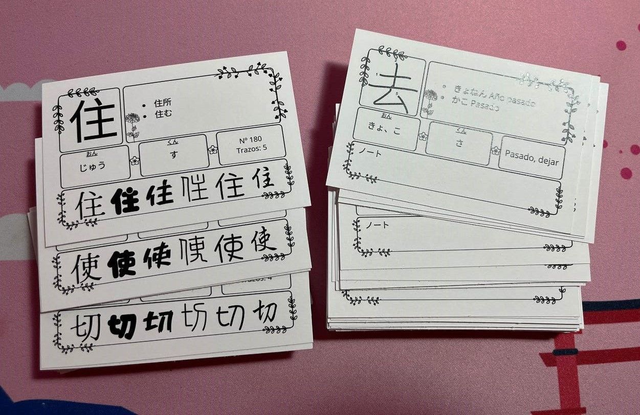 住
住所
住む
じゅう
す
Nº 180
Trazos: 5
住 住 住 住 住 住
使 使 使 使 使 使
切 切 切 切 切 切
去
きょねん Año pasado
かこ Pasado
きょ、こ
さ
Pasado, dejar
ノート
ノート